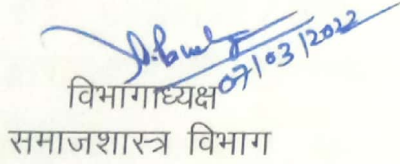 07/03/2022
विभागाध्यक्ष
समाजशास्त्र विभाग